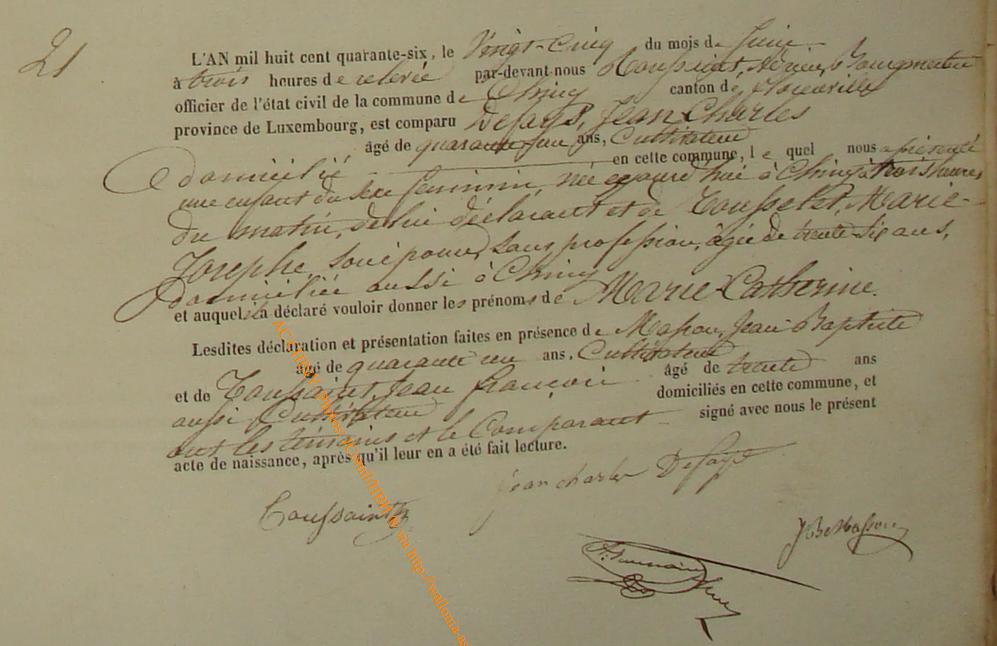 21
L'AN mil huit cent quarante-six, le Vingt-Cinq du mois de Juin
à trois heures de relevée par-devant nous Toussaint, Bourgmestre
officier de l'état civil de la commune de Chiny canton de florenville
province de Luxembourg, est comparu Defays, Jean Charles
âgé de quarante un ans, Cultivateur
domicilié en cette commune, le quel nous a présenté
une enfant du sexe feminin, née ce jourd'hui à Chiny à trois heures
du matin, de lui déclarant et de Tousselet, Marie-
Josephe son épouse, sans profession, âgée de trente six ans,
domiciliée aussi à Chiny
et auquel il a déclaré vouloir donner les prénoms de Marie-Catherine.
Lesdites déclaration et présentation faites en présence de Masson, Jean Baptiste
âgé de quarante un ans, Cultivateur
et de Toussaint, Jean françois âgé de trente ans
aussi Cultivateur domiciliés en cette commune, et
ont les témoins et le Comparant signé avec nous le présent
acte de naissance, après qu'il leur en a été fait lecture.
Jean charles Defays
Toussaint
JBt Masson